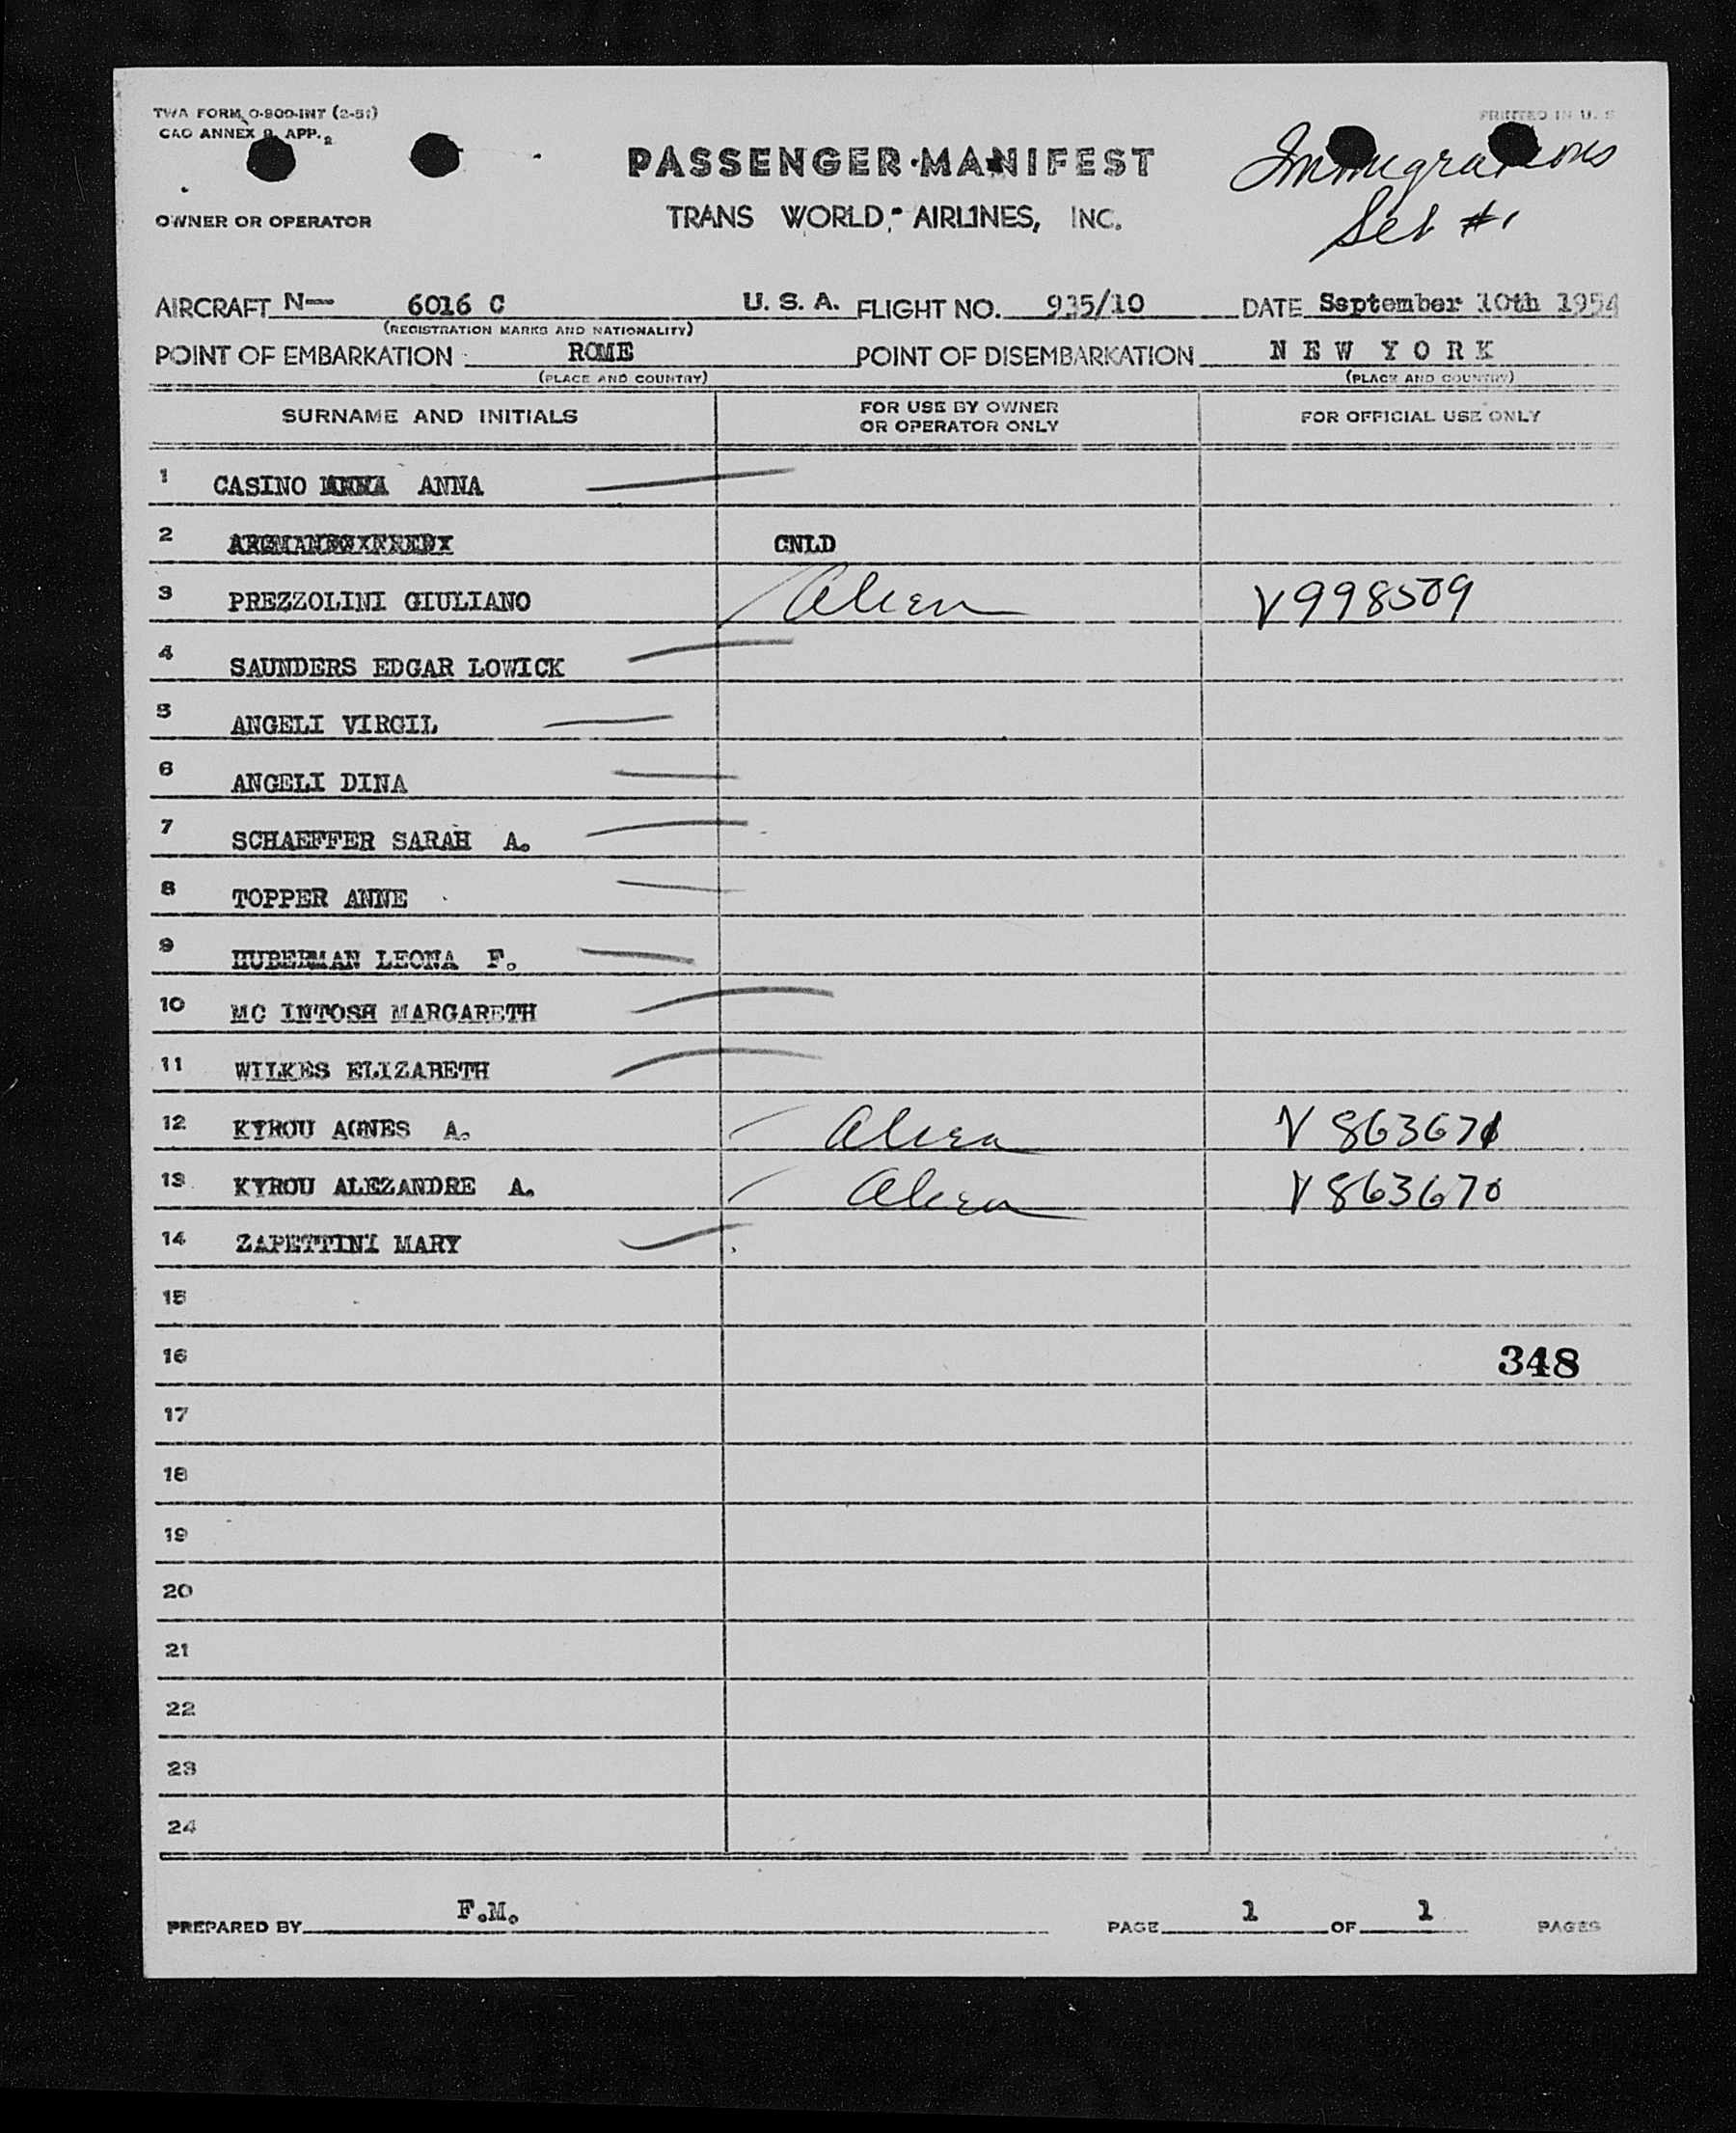 TWA FORM O-800-INT (2-51)
CAO ANNEX 9, APP. 2
PRINTED IN U. S
PASSENGER MANIFEST
Immigrations
Set #1
OWNER OR OPERATOR
TRANS WORLD AIRLINES, INC.
AIRCRAFT N— 6016 C U. S. A. FLIGHT NO. 935/10 DATE September 10th 1954
(REGISTRATION MARKS AND NATIONALITY)
POINT OF EMBARKATION ROME POINT OF DISEMBARKATION N E W Y O R K
(PLACE AND COUNTRY) (PLACE AND COUNTRY)
SURNAME AND INITIALS FOR USE BY OWNER OR OPERATOR ONLY FOR OFFICIAL USE ONLY
1 CASINO ANNA
2 CNLD
3 PREZZOLINI GIULIANO Alien V998509
4 SAUNDERS EDGAR LOWICK
5 ANGELI VIRGIL
6 ANGELI DINA
7 SCHAEFFER SARAH A.
8 TOPPER ANNE
9 HUBERMAN LEONA F.
10 MC INTOSH MARGARETH
11 WILKES ELIZABETH
12 KYROU AGNES A. Alien V 863671
13 KYROU ALEZANDRE A. Alien V 863670
14 ZAPETTINI MARY
15
16 348
17
18
19
20
21
22
23
24
PREPARED BY F.M. PAGE 1 OF 1 PAGES